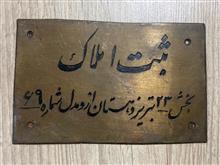 ثبت املاک
بخش ۲۳ تبریز دهستان ازومدل شماره ۶۹